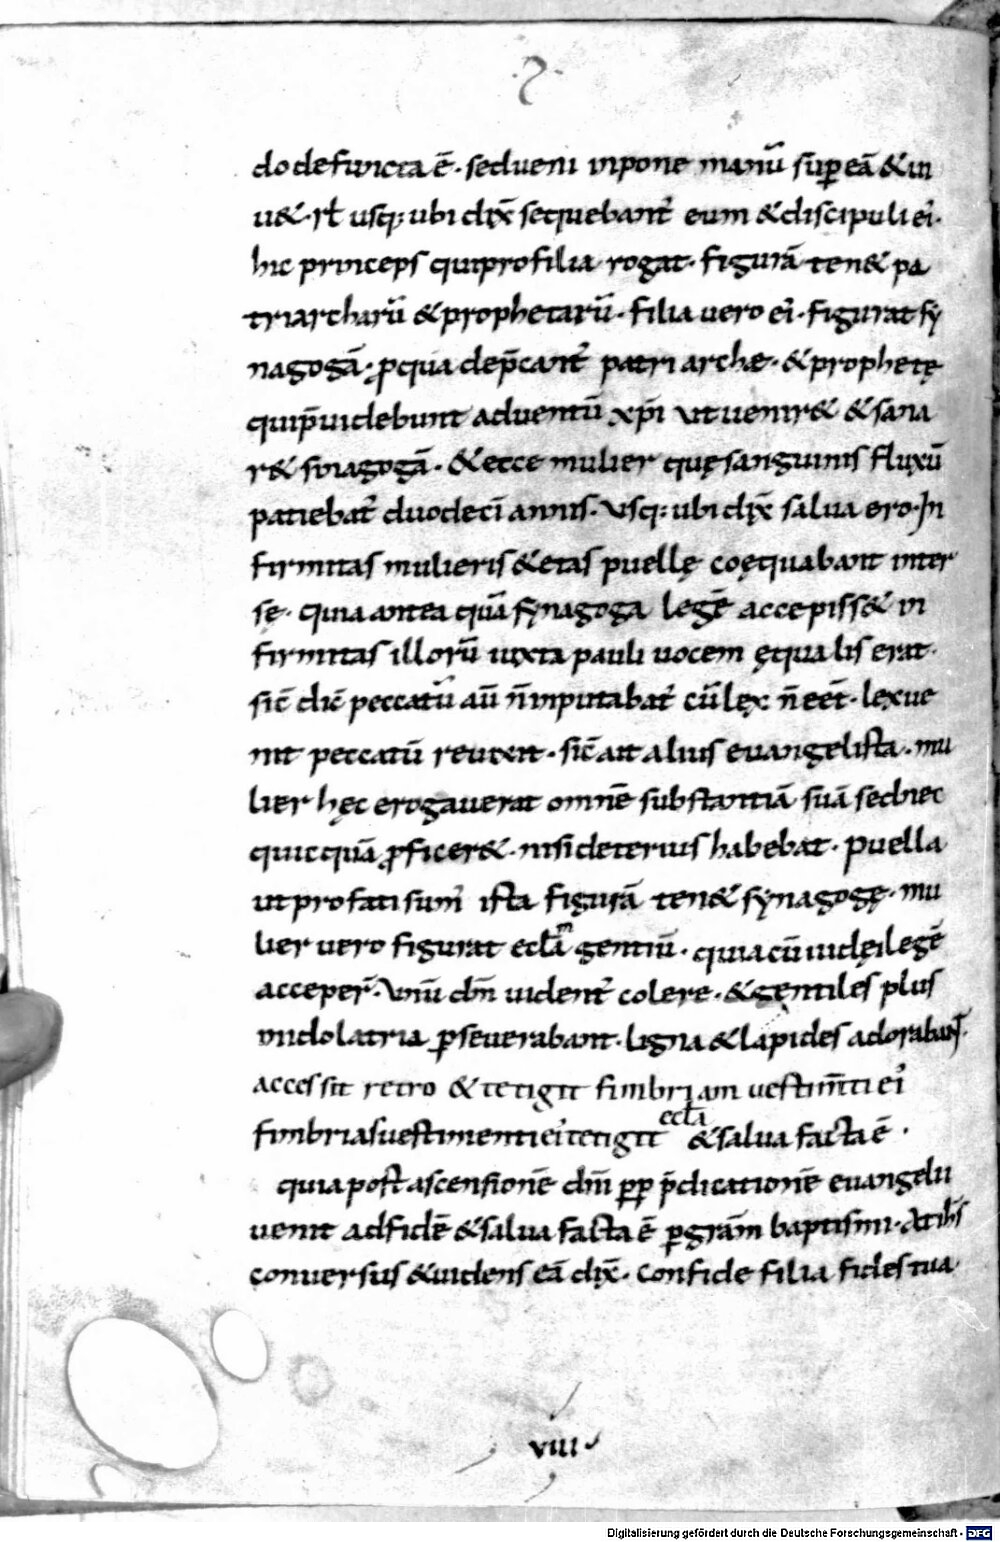 do defuncta ē · sed ueni inpone manū sup̄ eā & ui
u& · rł usq; ubi dix̄ sequebant᷑ eum & discipuli ei᷒ ·
hic princeps qui pro filia rogat · figurā ten& pa
triarcharū & prophetarū · filia uero ei᷒ · figurat sy
nagogā · ꝓ qua dep̄cant᷑ patriarchæ · & prophetę
qui p̄uidebunt aduentū xp̄i ut uenir& & sana
r& sinagogā · & ecce mulier quę sanguinis fluxū
patiebat᷑ duodeci annis · usq; ubi dix̄ salua ero · In
firmitas mulieris & etas puellę coęquabant inter
sę · quia antea quā synagoga legē accepiss& in
firmitas illorū iuxta pauli uocem ęqualis erat ·
sic̄ dic̄ peccatū aū n̄ inputabat᷑ cū lex n̄ eēt · lex ue
nit peccatū reuixit · sic̄ ait alius euangelista · mu
lier hęc erogauerat omnē substantiā suā sed nec
quicquā ꝓficer& · nisi deterius habebat · puella
ut profati sum᷒ ista figurā ten& synagogę · mu
lier uero figurat ecclā m gentiū · quia cū iudęi legē
acceper̄ · unū dm̄ uident᷑ colere · & gentiles plus
in idolatria ꝑseuerabant · ligna & lapides adorabant ·
accessit retro & tetigit fimbriam uestim̄ti ei᷒
fimbrias uestimenti ei᷒ tetigit eccła & salua facta ē ·
quia post ascensionē dn̄i ꝑ p̄dicationē euangelii
uenit ad fidē & salua facta ē ꝑ gram̄ baptismi · At ihs̄
conuersus & uidens eā dix̄ · confide filia fides tua
viii
Digitalisierung gefördert durch die Deutsche Forschungsgemeinschaft - DFG